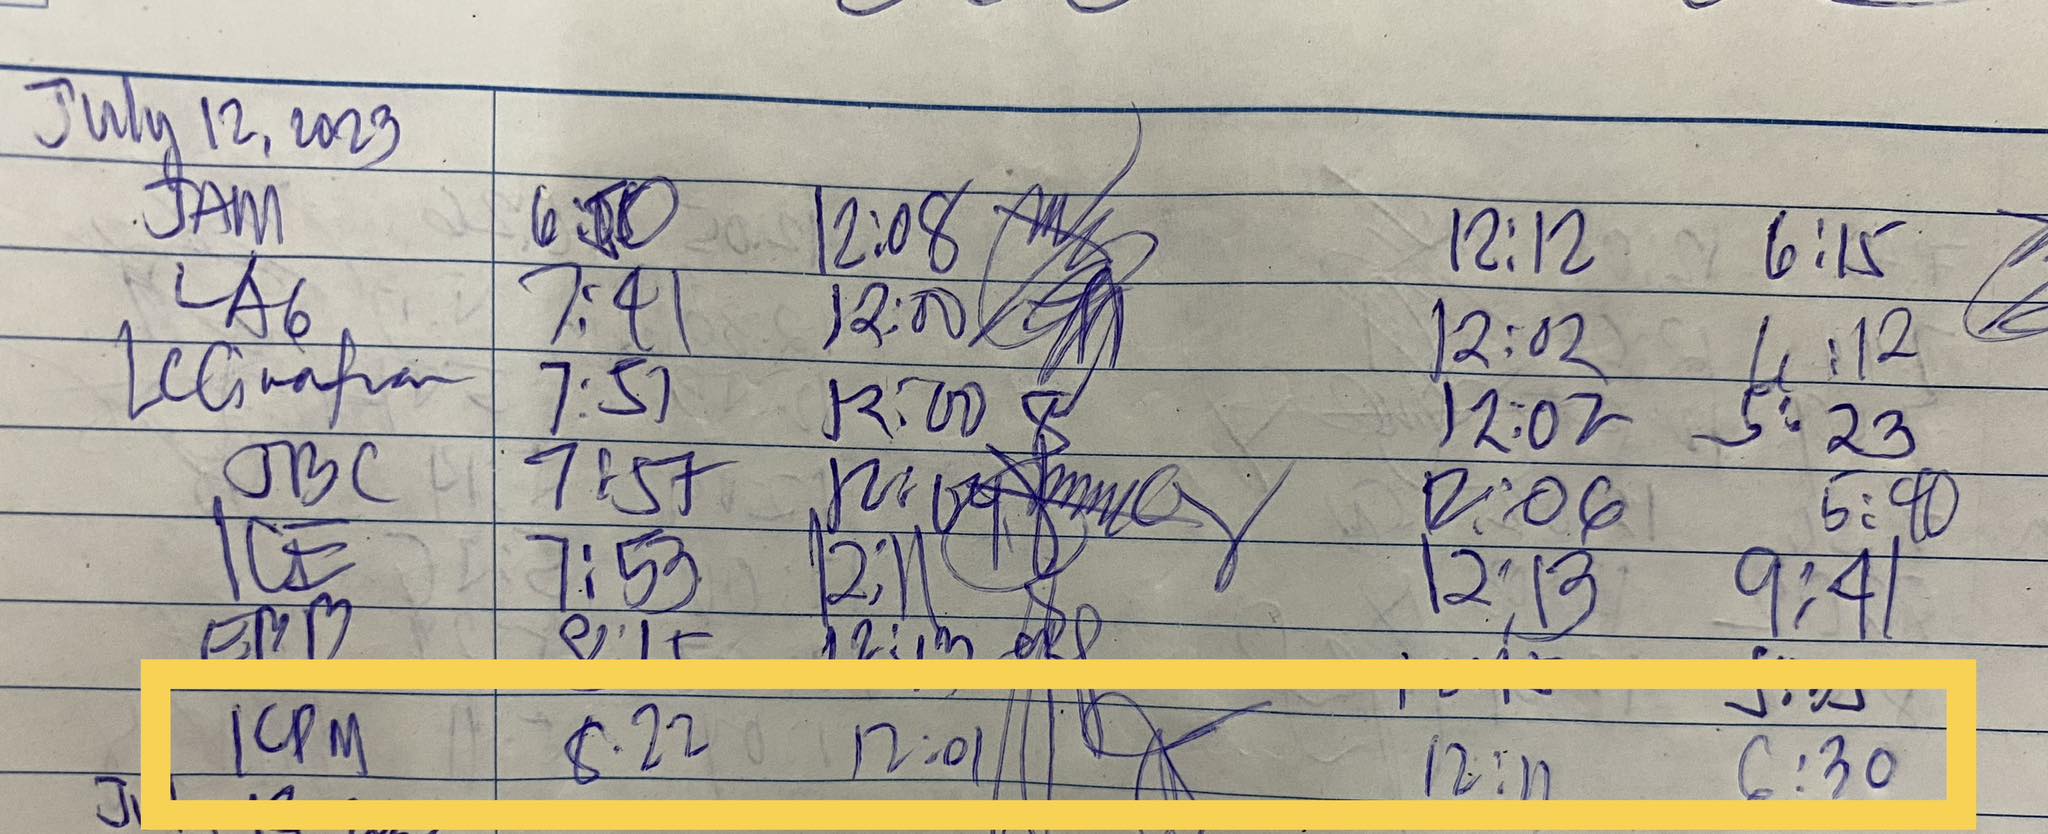 July 12, 2023
JAM 6:50 12:08 12:12 6:15
LAG 7:41 12:00 12:02 4:12
7:51 12:00 12:02 5:23
JBC 7:57 12:06 5:40
KE 7:53 12:11 12:13 9:41
8:15 12:13
KPM 8:22 12:01 12:11 6:30